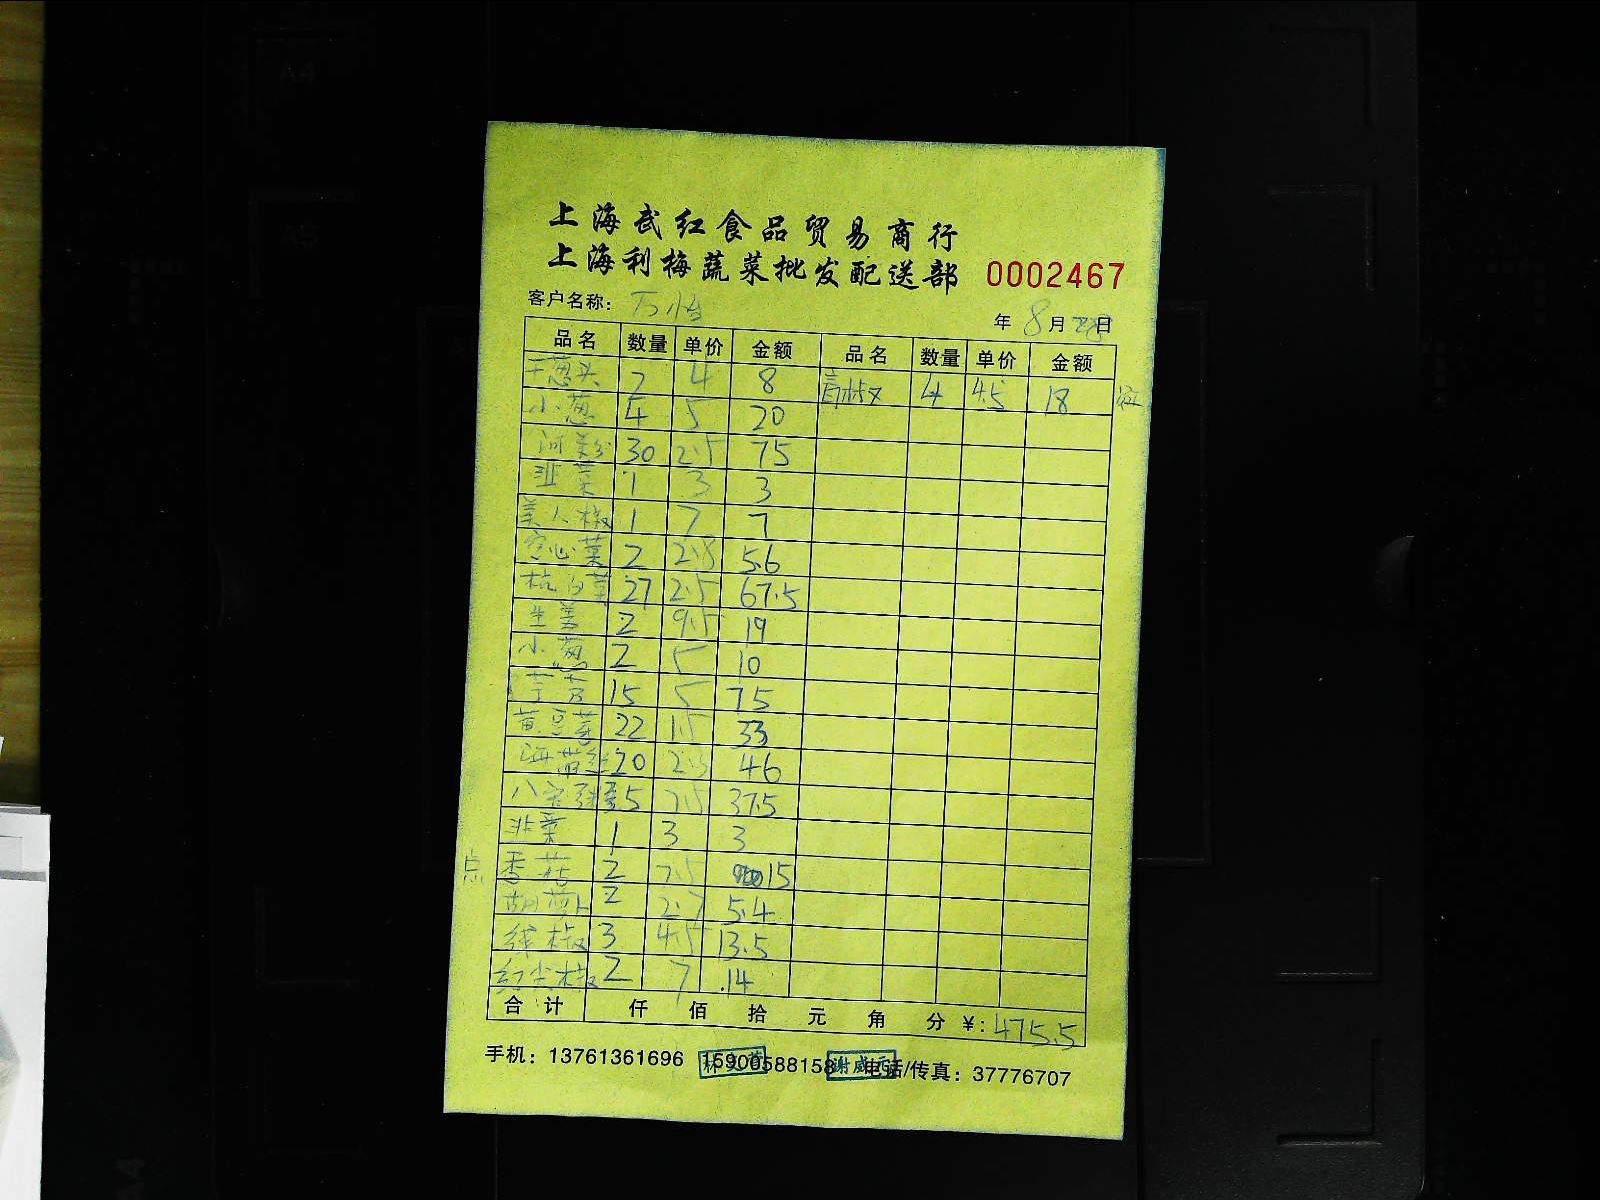 上海武红食品贸易商行
上海利梅蔬菜批发配送部 0002467
客户名称: 万怡 年 8月28日
品名 数量 单价 金额 品名 数量 单价 金额
干葱头 2 4 8 青椒 4 4.5 18
小葱 4 5 20
河粉 30 2.5 75
韭菜 1 3 3
美人椒 1 7 7
空心菜 2 2.8 5.6
杭白菜 27 2.5 67.5
生姜 2 9.5 19
小葱 2 5 10
芋艿 15 5 75
黄豆芽 22 1.5 33
海带丝 20 2.3 46
八宝 5 7.5 37.5
韭菜 1 3 3
点 香菇 2 7.5 15
胡萝卜 2 2.7 5.4
线椒 3 4.5 13.5
红尖椒 2 7 14
合计 仟 佰 拾 元 角 分 ¥: 475.5
手机: 13761361696 15900588158 电话/传真: 37776707